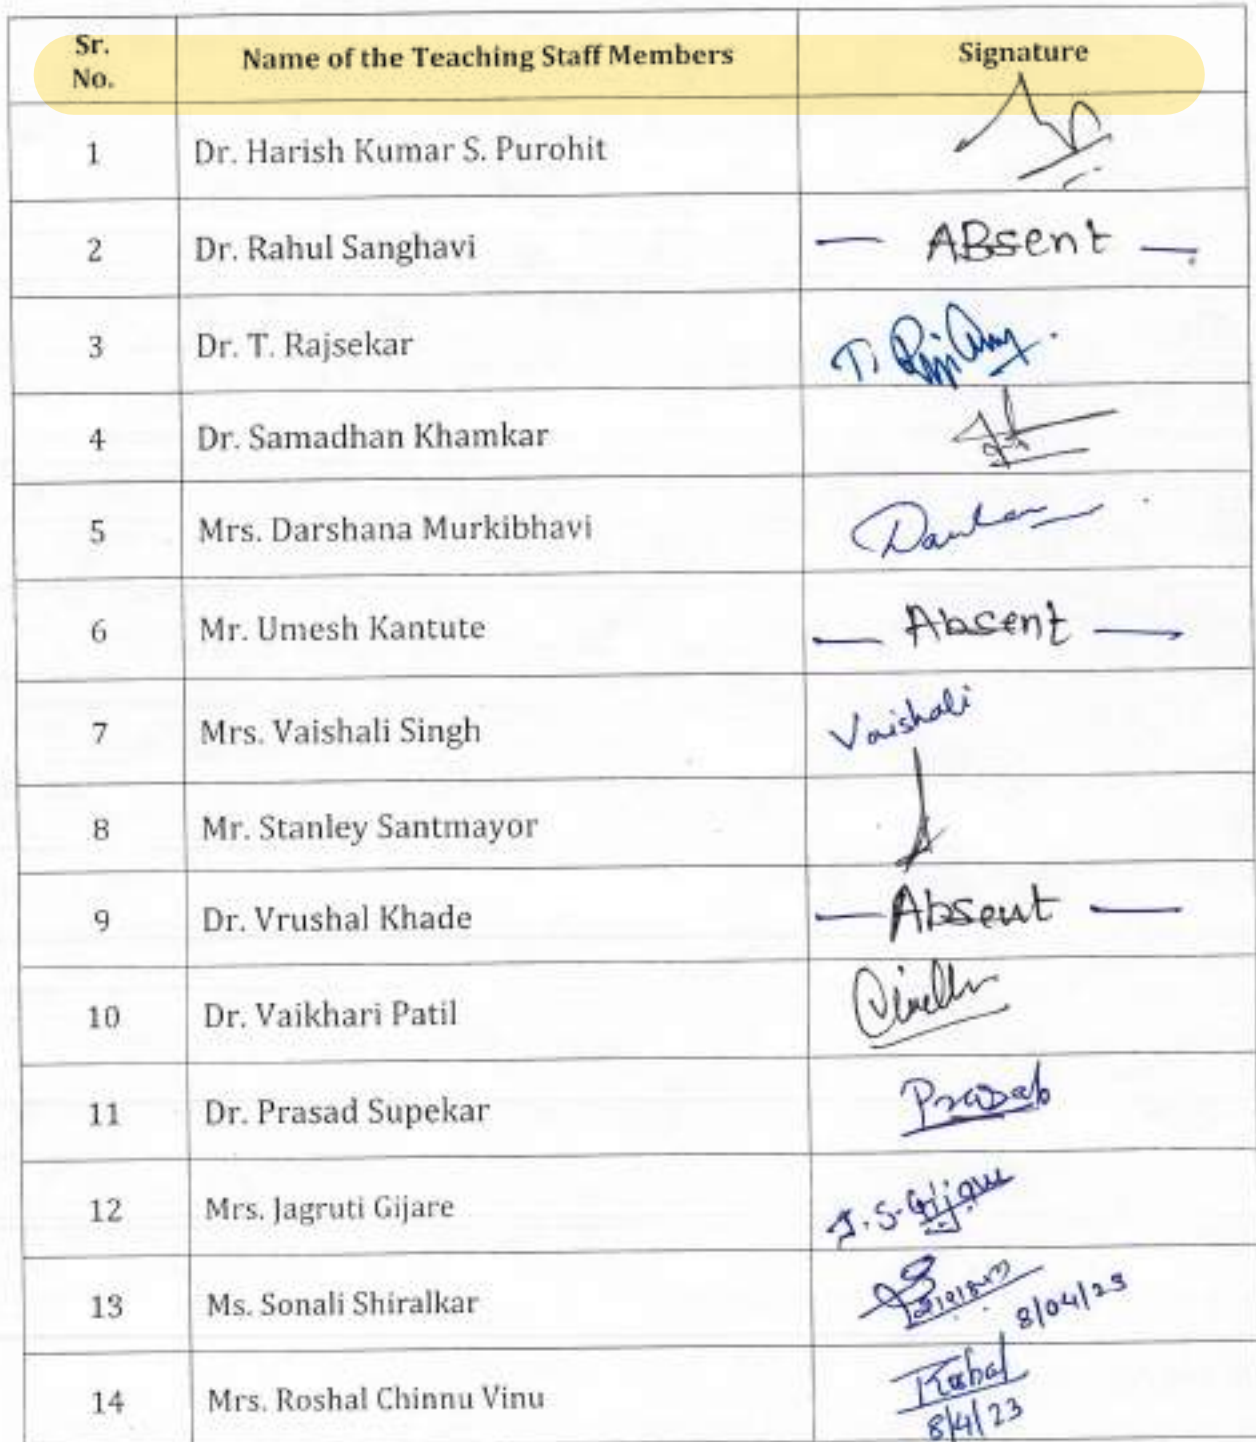 Sr. No. Name of the Teaching Staff Members Signature
1 Dr. Harish Kumar S. Purohit
2 Dr. Rahul Sanghavi — ABsent —
3 Dr. T. Rajsekar
4 Dr. Samadhan Khamkar
5 Mrs. Darshana Murkibhavi
6 Mr. Umesh Kantute — Absent —
7 Mrs. Vaishali Singh Vaishali
8 Mr. Stanley Santmayor
9 Dr. Vrushal Khade — Absent —
10 Dr. Vaikhari Patil
11 Dr. Prasad Supekar Prasad
12 Mrs. Jagruti Gijare J. S. Gijare
13 Ms. Sonali Shiralkar 8/04/23
14 Mrs. Roshal Chinnu Vinu
8/4/23